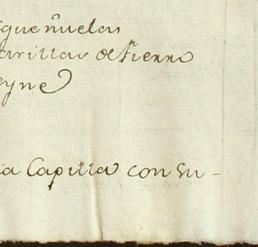 queñuelas
arrillas de fierro
eyne
a Capilla con su-